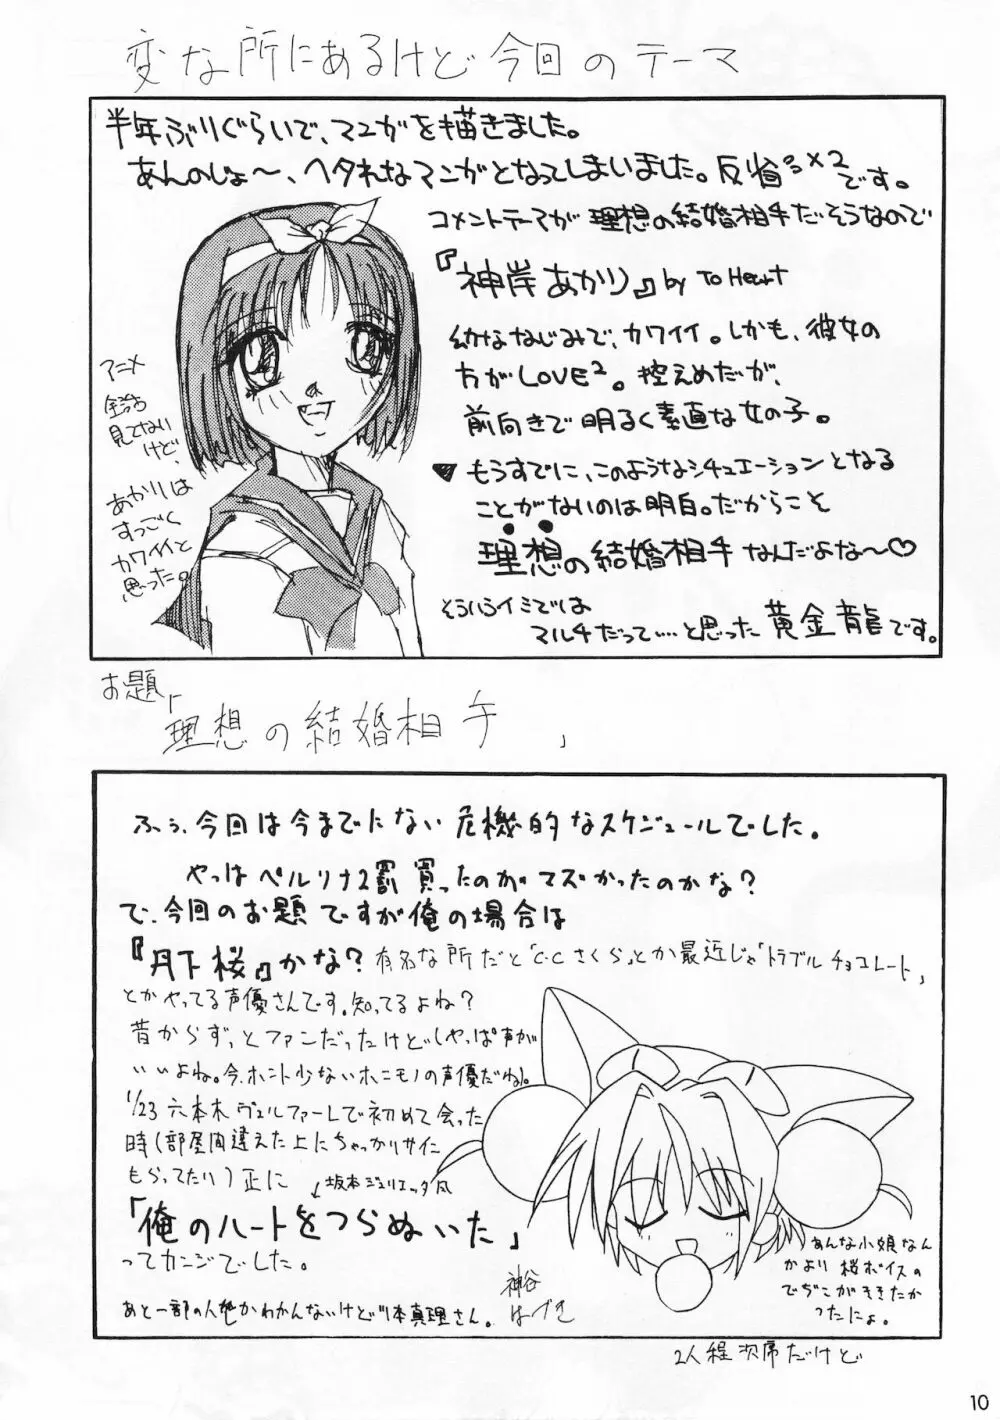 変な所にあるけど今回のテーマ
半年ぶりぐらいで、マンガを描きました。
あんのじょ〜、ヘタれなマンガとなってしまいました。反省×2です。
コメントテーマが理想の結婚相手だそうなので
『神岸あかり』by To Heart
幼ななじみで、カワイイ。しかも、彼女の
方がLOVE²。控えめだが、
前向きで明るく素直な女の子。
▼もうすでに、このようなシチュエーションとなる
ことがないのは明白。だからこそ
理想の結婚相手なんだよな〜♡
そういうイミでは
マルチだって…と思った黄金龍です。
アニメ
全部
見てない
けど、
あかりは
すっごく
カワイイと
思った。
お題
「理想の結婚相手」
ふぅ、今回は今までにない危機的なスケジュールでした。
やっぱペルソナ2罰買ったのがマズかったのかな?
で、今回のお題ですが俺の場合は
『丹下桜』かな?有名な所だと「C.Cさくら」とか最近じゃ「トラブルチョコレート」
とかやってる声優さんです。知ってるよね?
昔からずっとファンだったけど(やっぱ声が
いいよね。今、ホント少ないホンモノの声優だね)。
1/23 六本木ヴェルファーレで初めて会った
時(部屋間違えた上にちゃっかりサイン
もらってたり)正に
↙坂本ジュリエッタ風
「俺のハートをつらぬいた」
ってカンジでした。
あと一部の人しかわかんないけど川本真理さん。
神谷
はづき
あんな小娘なん
かより桜ボイスの
でぢこがききたか
ったにょ。
2人程次席だけど
10